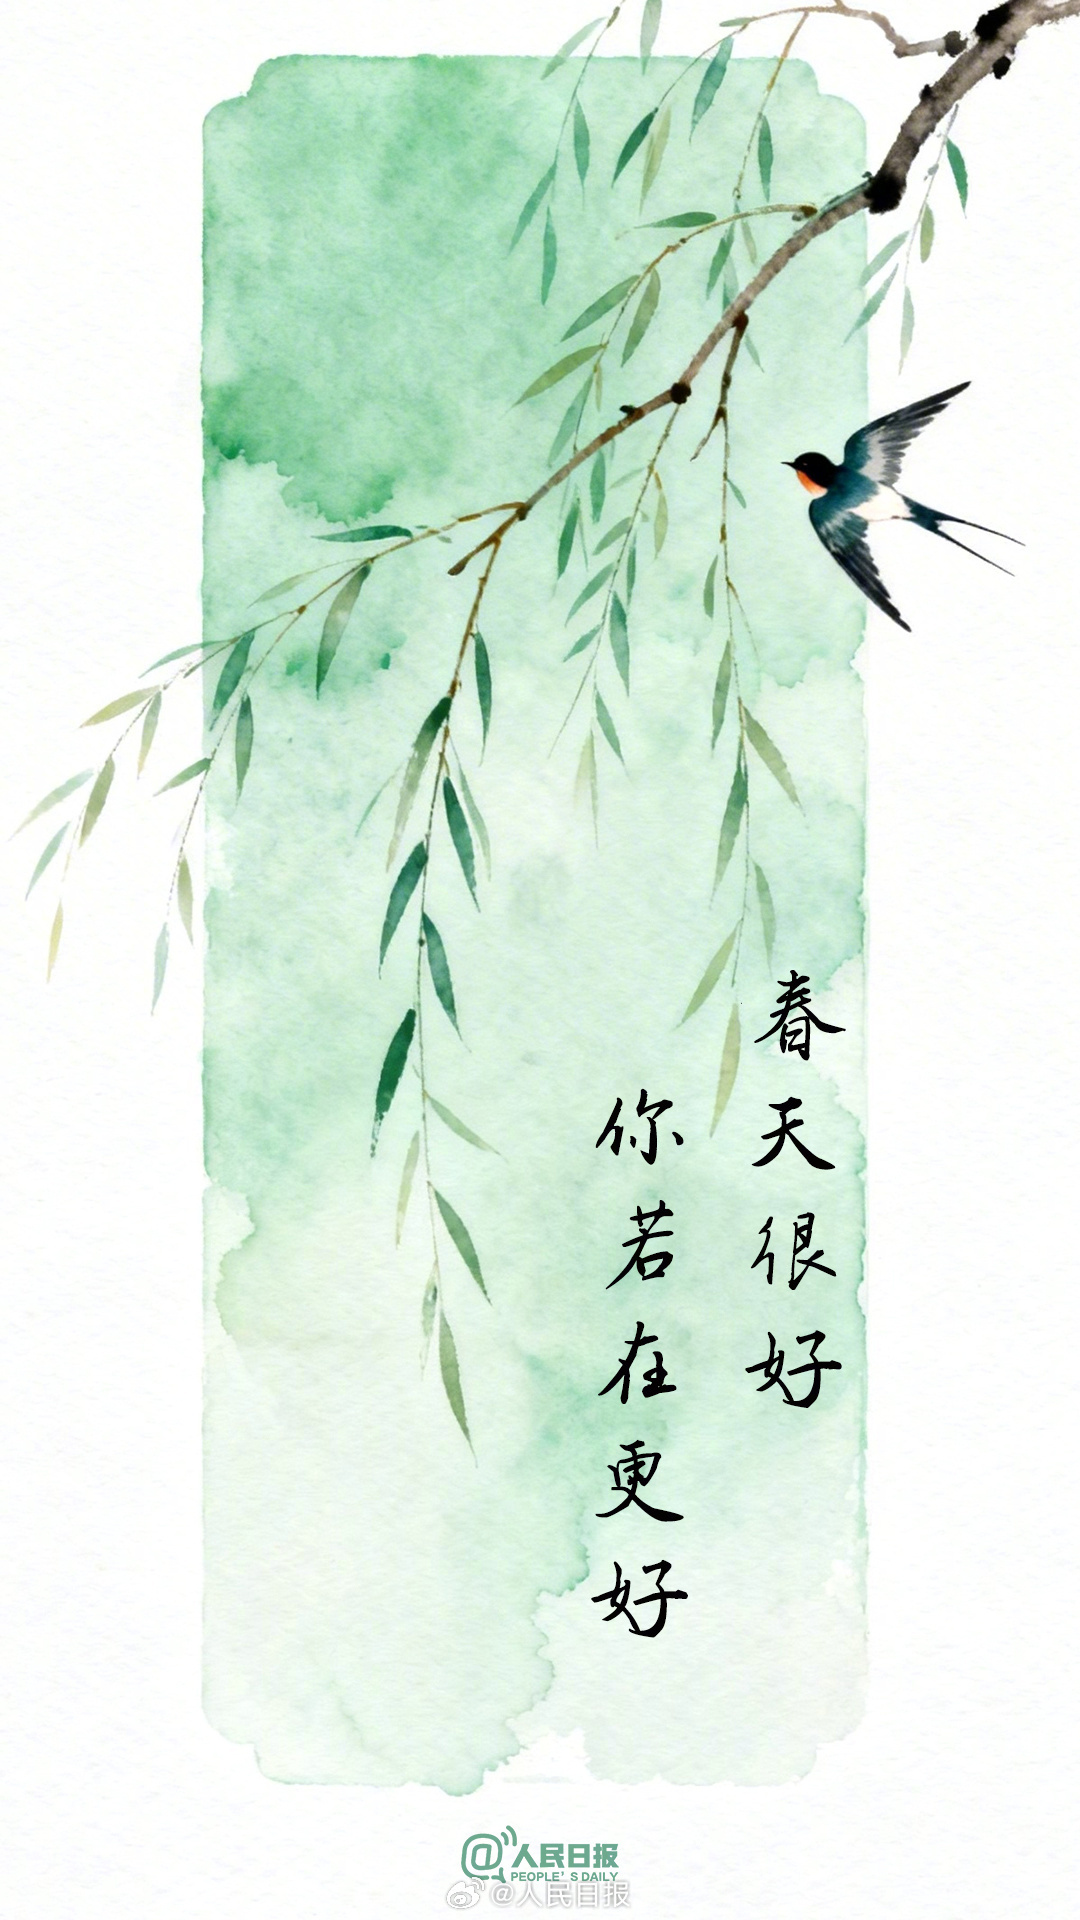 春天很好
你若在更好
@人民日报
PEOPLE'S DAILY
@人民日报